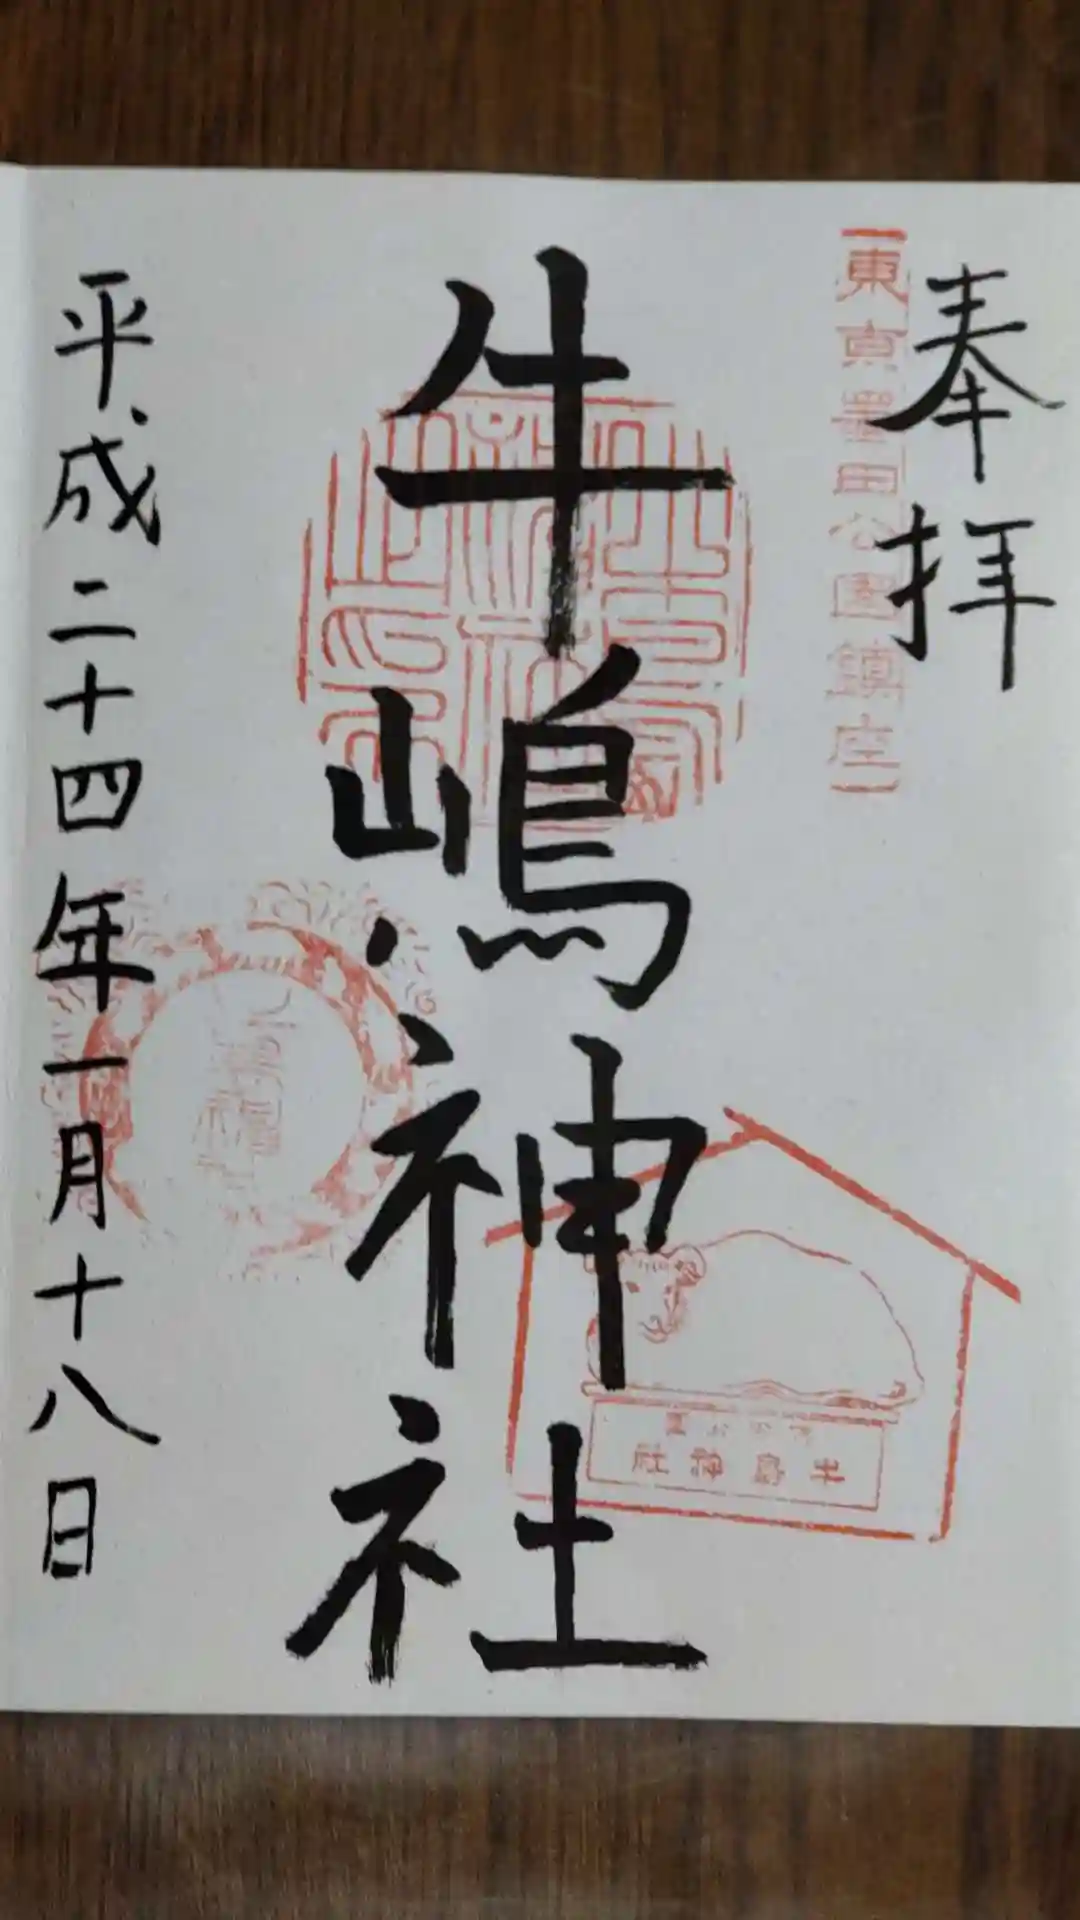 奉拝
東京墨田公園鎮座
牛嶋神社
牛島神社
平成二十四年一月十八日